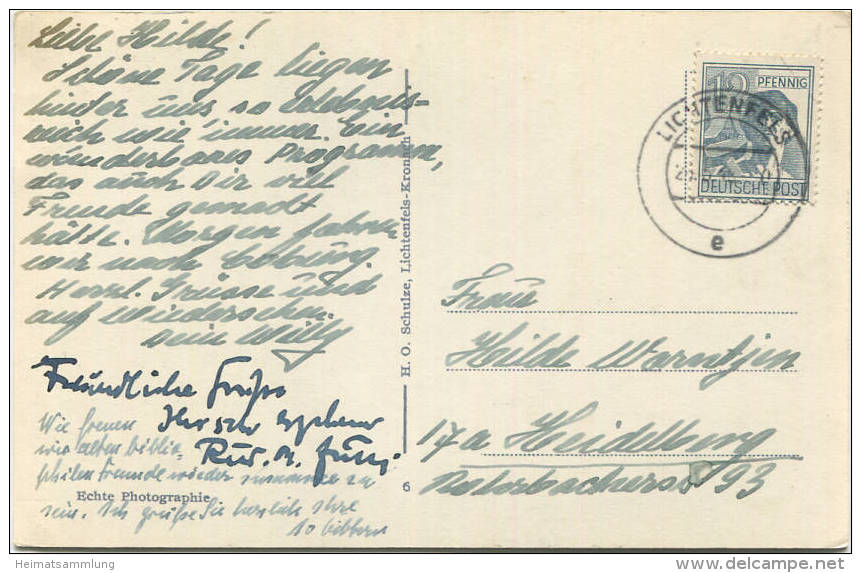 Liebe Hilde!
Schöne Tage liegen
hinter uns so erlebnis-
reich wie immer. Ein
wunderbares Programm,
das auch Dir viel
Freude gemacht
hätte. Morgen fahren
wir nach Coburg.
Herzl. Grüsse und
auf Wiedersehen.
Dein Willy
Freundliche Grüße
Ihr sehr
Wie freuen
wir alten biblio-
philen Freunde wieder zusammen zu
sein. Ich grüße Sie herzlich Ihre
Echte Photographie
H. O. Schulze, Lichtenfels-Kronach
6
12 PFENNIG
DEUTSCHE POST
LICHTENFELS
e
Frau
Hilde
17a Heidelberg
93
Heimatsammlung
delcampe.net